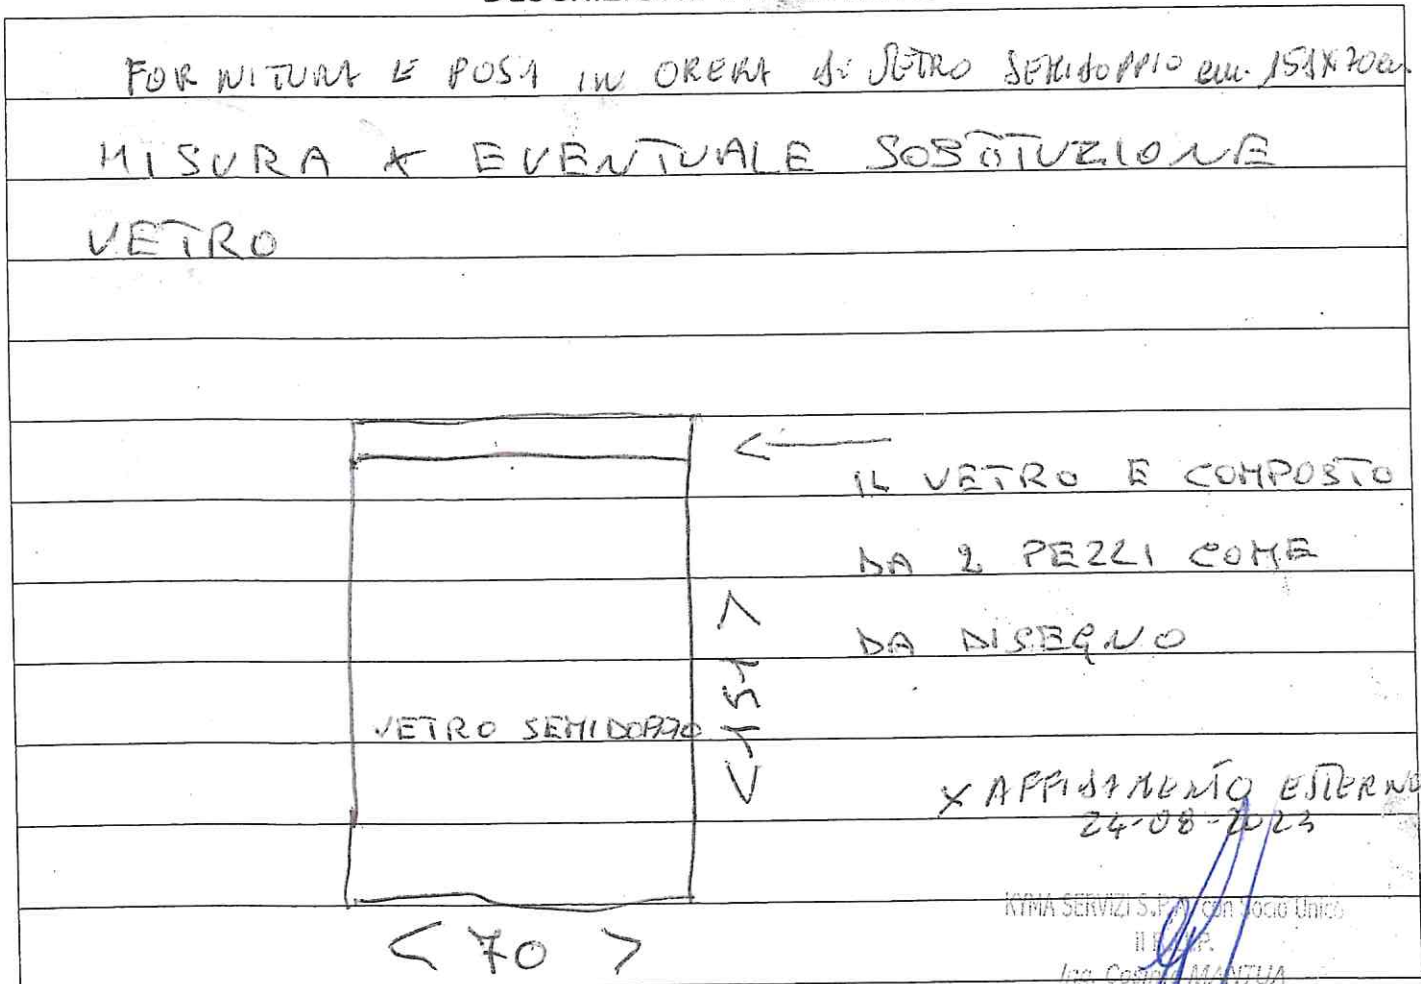 FORNITURA E POSA IN OPERA di VETRO SEMIDOPPIO cm. 151X70cm.
MISURA X EVENTUALE SOSTITUZIONE
VETRO
IL VETRO E COMPOSTO
DA 2 PEZZI COME
DA DISEGNO
< 151 >
VETRO SEMIDOPPIO
X AFFIDAMENTO ESTERNO
24-08-2023
KYMA SERVIZI S.P.A. con Socio Unico
Ing. MANTUA
< 70 >